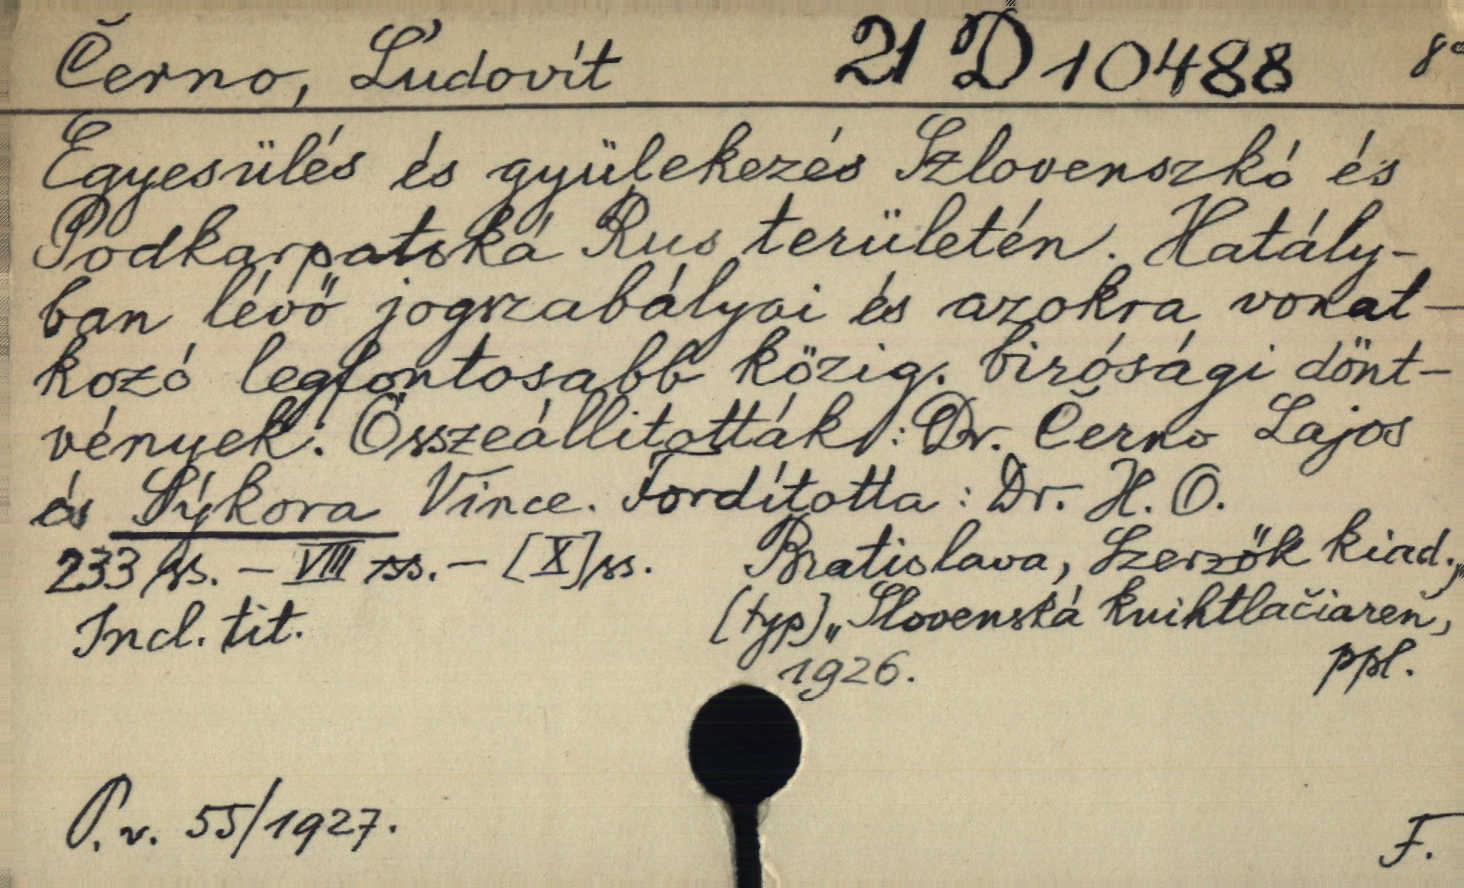 Černo, Ľudovít 21 D 10488 8°
Egyesülés és gyülekezés Szlovenszkó és
Podkarpatská Rus területén. Hatály-
ban lévő jogszabályai és azokra vonat-
kozó legfontosabb közig. birósági dönt-
vények. Összeállitották: Dr. Černo Lajos
és Sýkora Vince. Fordította: Dr. H. O.
233 ss. – VIII ss. – [X] ss. Bratislava, Szerzők kiad.,
Incl. tit. [typ] „Slovenská knihtlačiareň,
1926. ppl.
P. v. 55/1927. F.